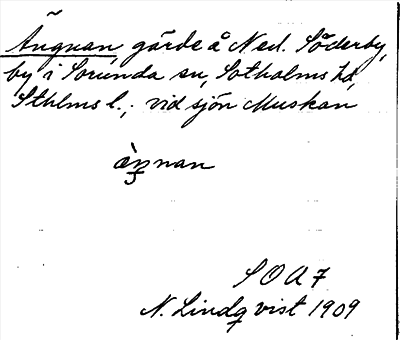 Ängnan gärde å Ned. Söderby,
by i Sorunda sn, Sotholms hd,
Sthlms l., vid sjön Muskan
ὲŋnan
S O A 7
N. Lindqvist 1909